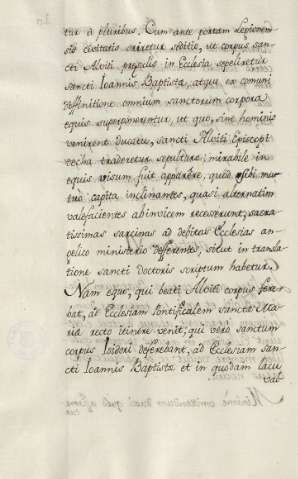 tur à pluribus. Cum ante portam Legionen
sis civitatis oriretur seditio, ut corpus san-
cti Alviti propellis in Ecclesia sepeliretur
sancti Ioannis Baptistæ, atque ex comuni
deffinitione omnium sanctorum corpora
equis superponentur, ut quo, sine hominis
venirent ductu, sancti Alviti Episcopi
techa traderetur sepulture; mirabile in
equis visum fuit apparere, quia sibi mu-
tuò capita inclinantes, quasi alternatim
valefacientes abinvicem recesserunt; sacra
tissimas sarcinas ad debitas Ecclesias an-
gelico ministerio defferentes, sicut in transla
tione sancti doctoris scriptum habetur.
Nam equus, qui beati Alviti corpus fere
bat, ad Ecclesiam Pontificalem sanctæ Ma
riæ recto itinere venit; qui vero sanctum
corpus Isidori deferebat, ad Ecclesiam san-
cti Ioannis Baptistæ et in quodam lacu